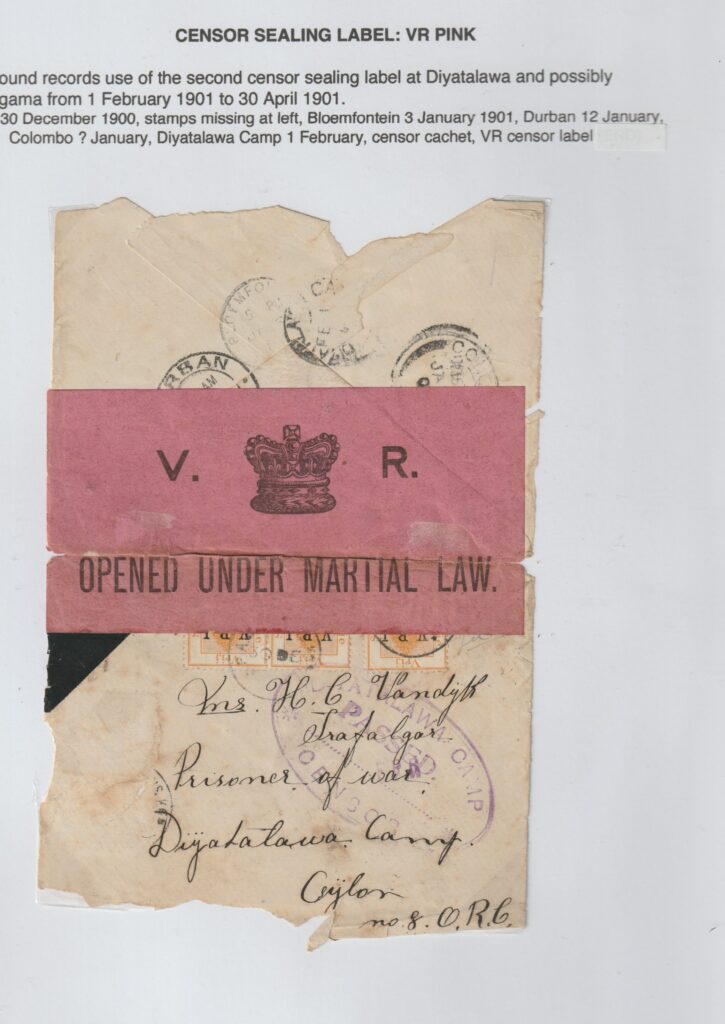 CENSOR SEALING LABEL: VR PINK
ound records use of the second censor sealing label at Diyatalawa and possibly
gama from 1 February 1901 to 30 April 1901.
30 December 1900, stamps missing at left, Bloemfontein 3 January 1901, Durban 12 January,
Colombo ? January, Diyatalawa Camp 1 February, censor cachet, VR censor label
RBAN
AM
CO
JA
V. R.
OPENED UNDER MARTIAL LAW.
V R I
V R I
V R I
DIYATALAWA CAMP
PASSED
CENSOR
H. C. Vandijk
Trafalgar
Prisoner of war
Diyatalawa Camp.
Ceijlon
no 8. O.R.C.